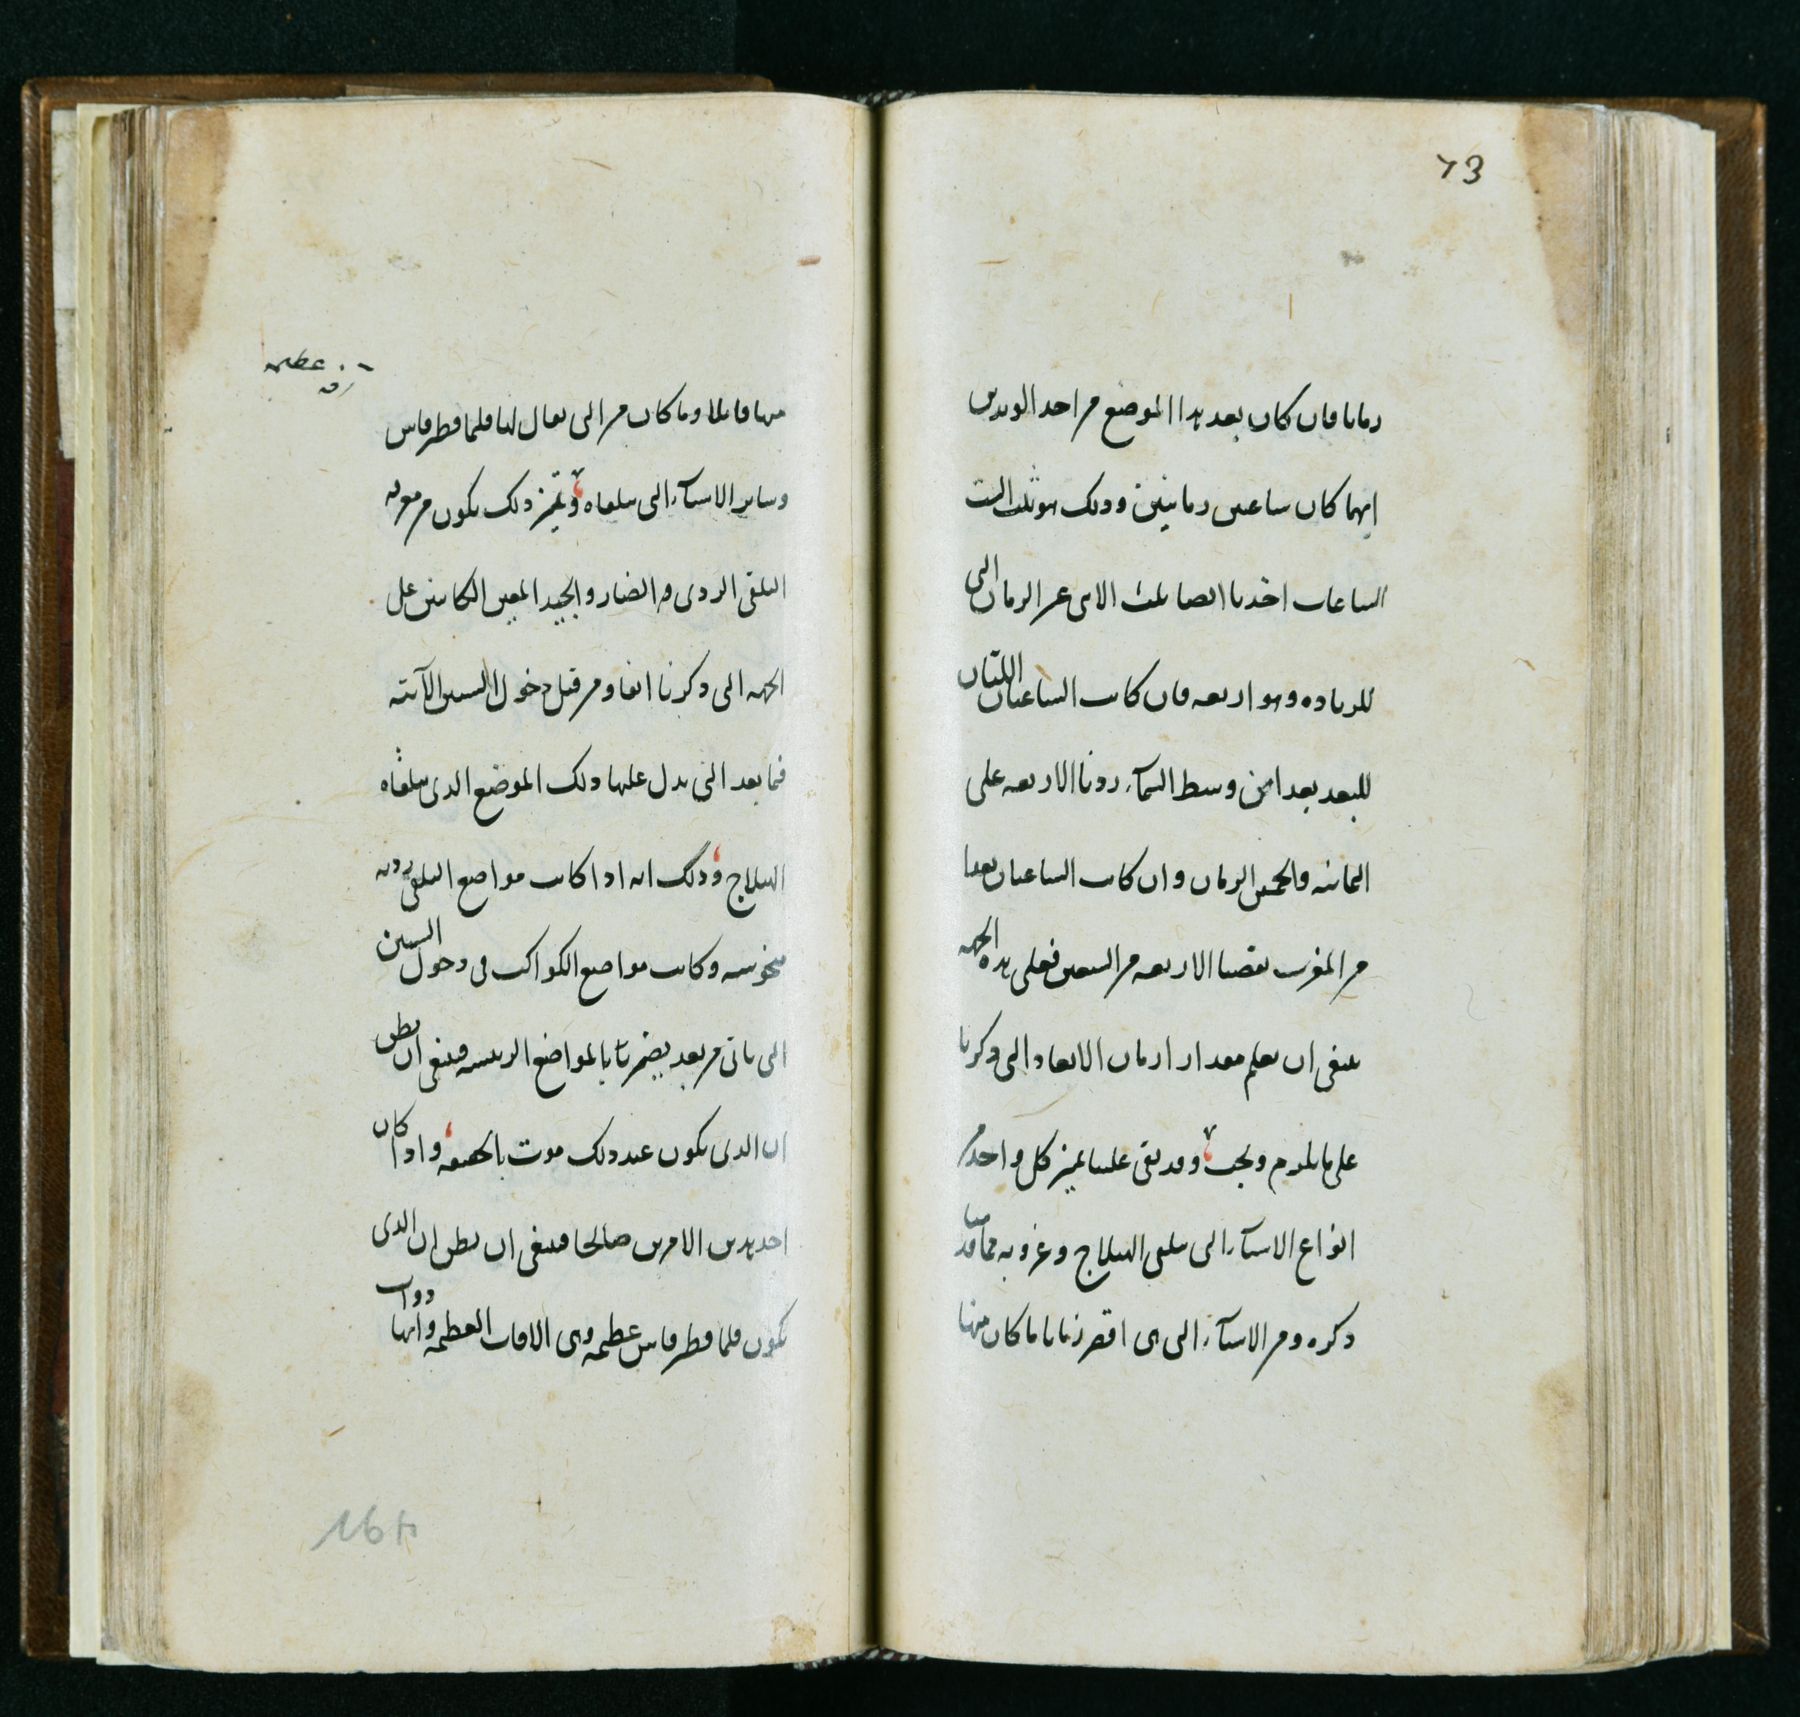 73
زمانا فان كان بعد هذا الموضع من احد الوتدين
ايهما كان ساعتين زمانيتين وذلك هو ثلث الست
الساعات اخذنا ايضا ثلث الاثنى عشر الزمان التى
للزيادة وهو اربعه فان كانت الساعتان اللتان
للبعد بعدا من وسط السمآء زدنا الاربعه على
الثمانيه والخمسين الزمان وان كانت الساعتان بعدا
من المغرب نقصنا الاربعه من السبعين فعلى هذه الجهه
ينبغى ان نعلم مقدار ازمان الابعاد التى ذكرنا
على ما يلزم ويجب وقد بقى علينا تميز كل واحد من
انواع الاشيآء التى تلقى الهيلاج وغروبه مما قد
ذكره ومن الاشيآء التى هى اقصر زمانا ما كان منها
منها قاتلا وما كان من التى يقال لها قليماقطرقاس
وساير الاشيآء التى تلقاه وتميز ذلك يكون من معرفه
التلقى الردى والضار والجيد المعين الكائنين على
الجهه التى ذكرنا انفا ومن قبل دخول السنين الآتيه
فيما بعد التى يدل عليها ذلك الموضع الذى تلقاه
الهيلاج وذلك انه اذا كانت مواضع التلقى رديه
منحوسه وكانت مواضع الكواكب فى دخول السنين
التى تاتى من بعد يضر بالمواضع الرئيسه فينبغى ان يظن
ان الذى يكون عند ذلك موت بالحقيقه واذا كان
احد هذين الامرين صالحا فينبغى ان يظن ان الذى
يكون قليماقطرقاس عظيمه وهى الافات العظيمه وانها
ذوات
عظيمه